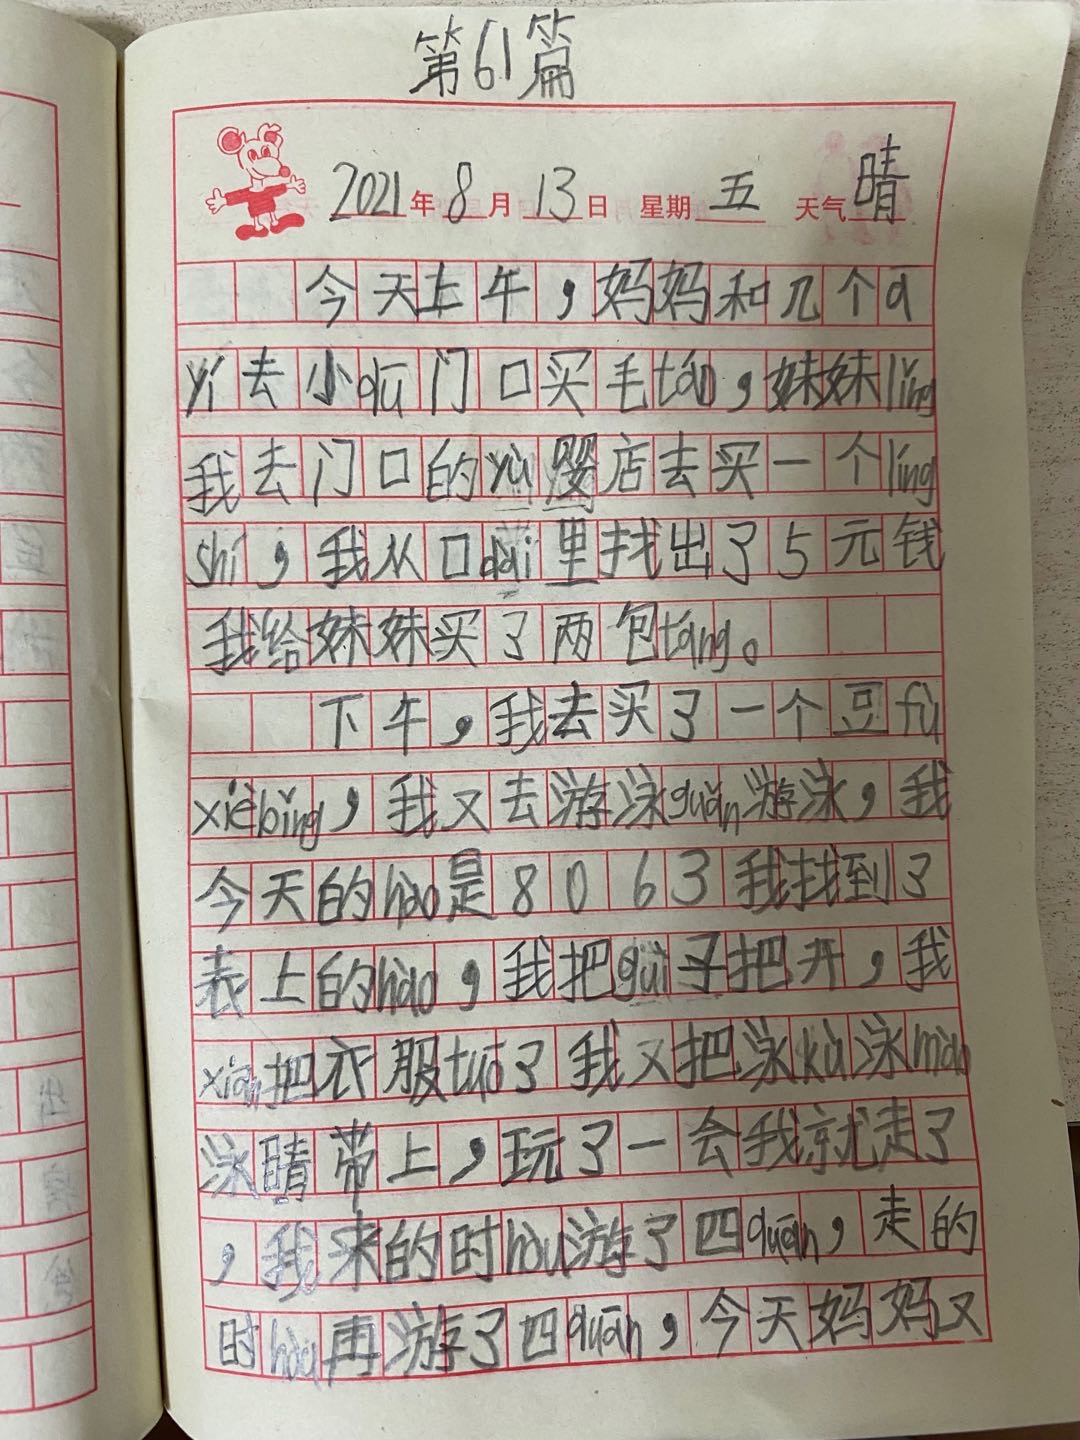 第61篇
2021年8月13日 星期五 天气晴
今天上午，妈妈和几个ā
yí去小qū门口买毛tǎn，妹妹lǐng
我去门口的yù婴店去买一个líng
shí，我从口dài里找出了5元钱
我给妹妹买了两包táng。
下午，我去买了一个豆fù
xiěbǐng，我又去游泳guǎn游泳，我
今天的hào是8063我找到了
表上的hào，我把guì子把开，我
xiān把衣服tuō了我又把泳kù泳mào
泳睛带上，玩了一会我就走了
，我来的时hòu游了四quān，走的
时hòu再游了四quān，今天妈妈又